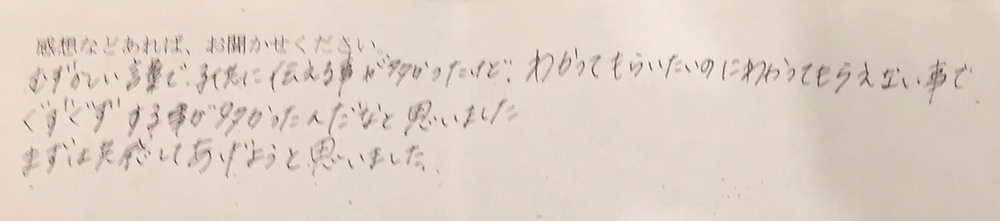 感想などあれば、お聞かせください。
むずかしい言葉で、子供に伝える事が多かったけど、わかってもらいたいのにわかってもらえない事で
ぐずぐずする事が多かったんだなと思いました
まずは共感してあげようと思いました。